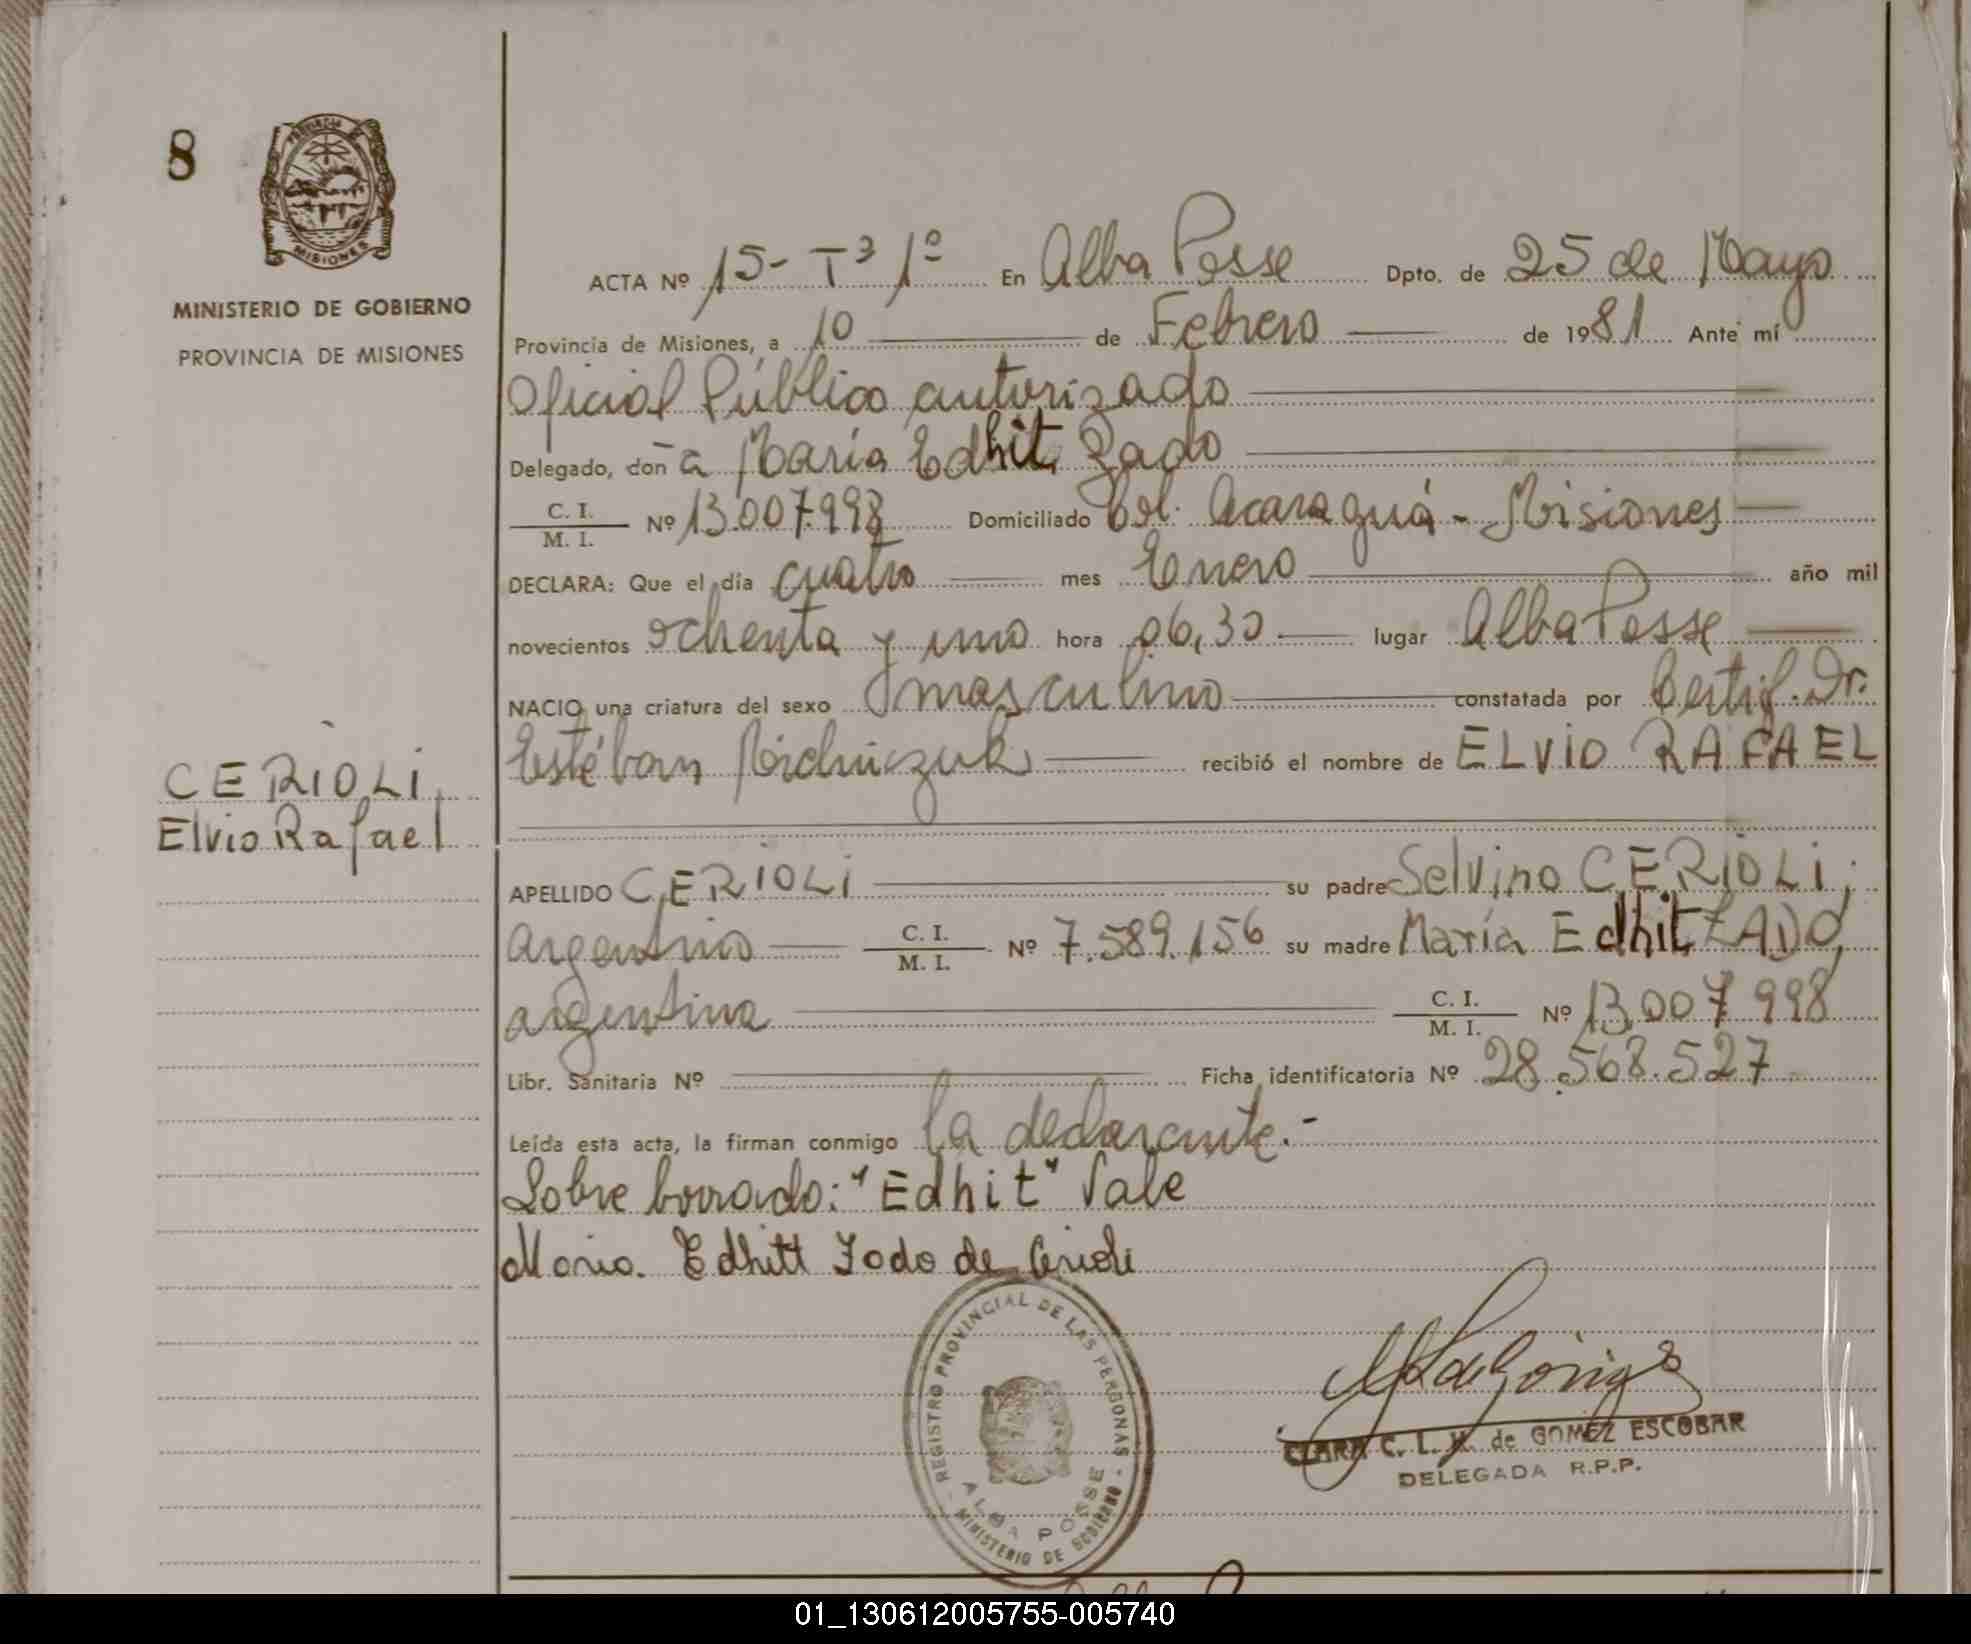 8
PROVINCIA DE
MISIONES
MINISTERIO DE GOBIERNO
PROVINCIA DE MISIONES
ACTA Nº 15- Tº 1º En Alba Posse Dpto. de 25 de Mayo
Provincia de Misiones, a 10 de Febrero de 1981 Ante mí
Oficial Público autorizado
Delegado, don a María Edhit Zado
C. I. / M. I. Nº 13.007.998 Domiciliado Col. Acaraguá - Misiones
DECLARA: Que el día cuatro mes Enero año mil
novecientos ochenta y uno hora 06,30 lugar Alba Posse
NACIO una criatura del sexo masculino constatada por Certif. Dr.
Estéban Michniczuk recibió el nombre de ELVIO RAFAEL
CERIOLI
Elvio Rafael
APELLIDO CERIOLI su padre Selvino CERIOLI,
argentino C. I. / M. I. Nº 7.589.156 su madre María Edhit ZADO,
argentina C. I. / M. I. Nº 13.007.998
Libr. Sanitaria Nº Ficha identificatoria Nº 28.568.527
Leída esta acta, la firman conmigo la declarante.-
Sobre borrado: "Edhit" Vale
Maria Edhitt Zado de Cerioli
REGISTRO PROVINCIAL DE LAS PERSONAS
ALBA POSSE
MINISTERIO DE GOBIERNO
CLARA C. L. H. de GOMEZ ESCOBAR
DELEGADA R.P.P.
01_130612005755-005740